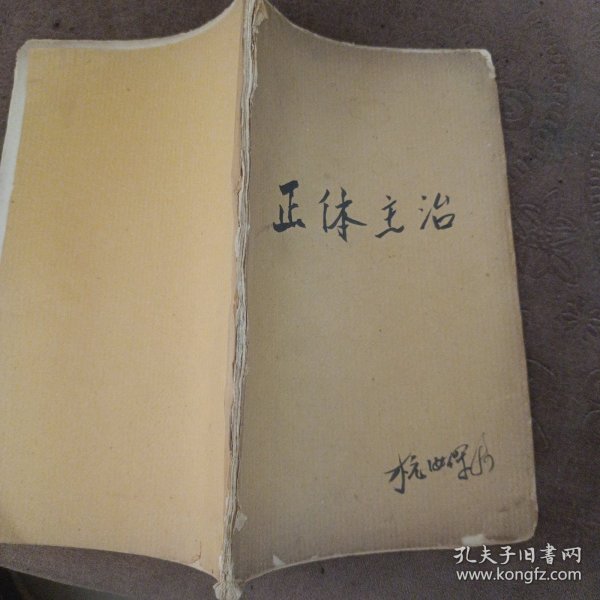 正体主治
孔夫子旧书网
www.kongfz.com